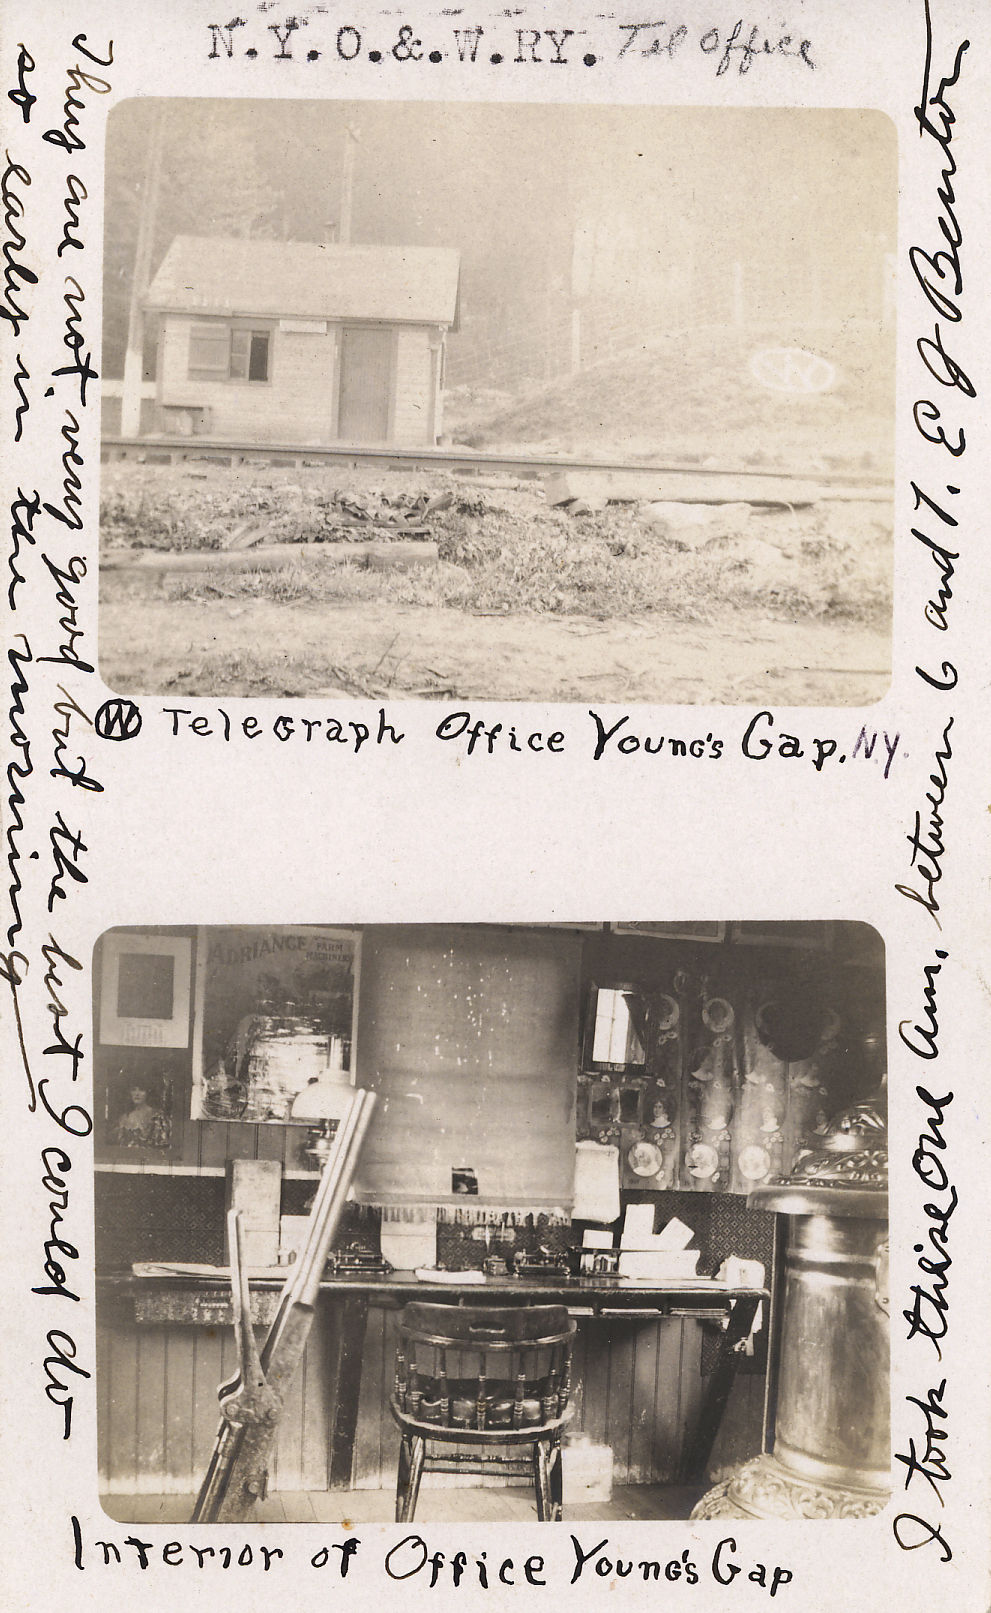 N.Y.O.&.W.RY. Tel Office
Ⓦ Telegraph Office Young's Gap. N.Y.
ADRIANCE FARM
MACHINERY
Interior of Office Young's Gap
They are not very good but the best I could do
so early in the morning
I took these one am. between 6 and 7. E J Benton